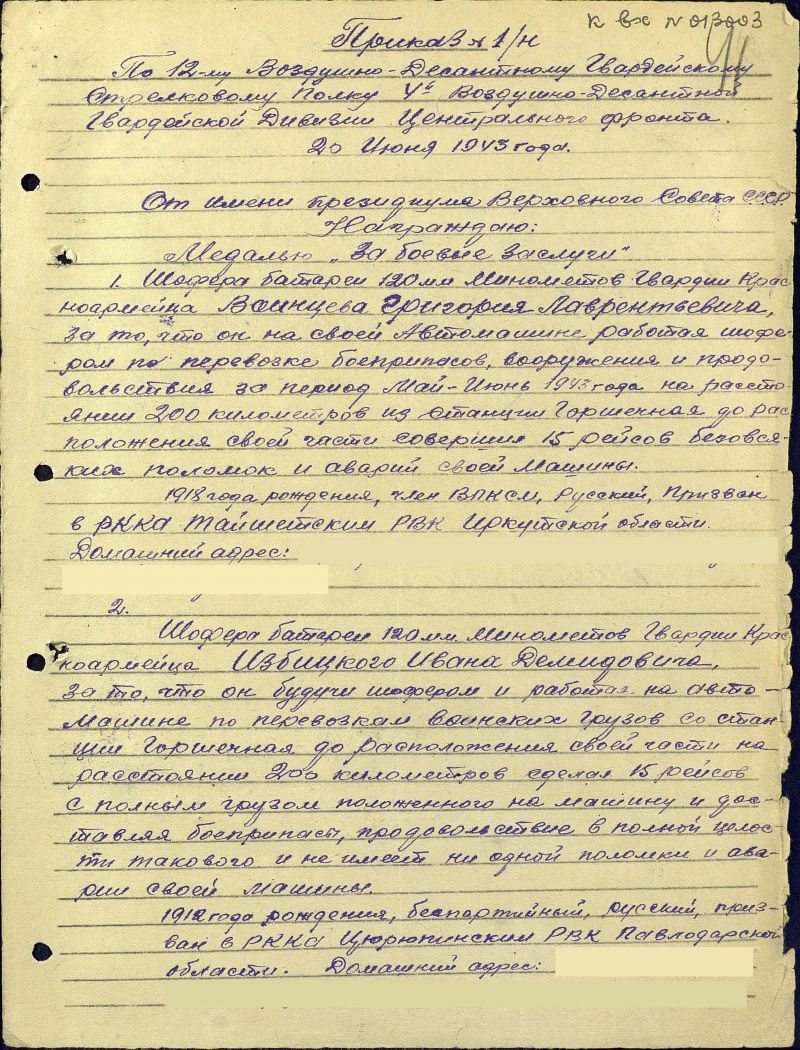 К вх N 013003
Приказ N 1/н
По 12-му Воздушно-Десантному Гвардейскому
Стрелковому Полку 4й Воздушно-Десантной
Гвардейской Дивизии Центрального фронта.
20 Июня 1943 года.
От имени президиума Верховного Совета СССР
Награждаю:
Медалью „За боевые заслуги"
1. Шофера батареи 120 мм Минометов Гвардии Крас
ноармейца Воинцева Григория Лаврентьевича,
за то, что он на своей Автомашине работая шофе-
ром по перевозке боеприпасов, вооружения и продо-
вольствия за период Май-Июнь 1943 года на рассто-
янии 200 километров из станции Горшечная до рас
положения своей части совершил 15 рейсов безовся-
ких поломок и аварий своей Машины.
1918 года рождения, член ВЛКСМ, Русский, Призван
в РККА Тайшетским РВК Иркутской области.
Домашний адрес:
2.
Шофера батареи 120 мм. Минометов Гвардии Крас
ноармейца Избицкого Ивана Демидовича,
за то, что он будучи шофером и работая на авто-
Машине по перевозкам воинских грузов со стан-
ции Горшечная до расположения своей части на
расстоянии 200 километров сделал 15 рейсов
с полным грузом положенного на машину и дос-
тавляя боеприпасы, продовольствие в полной целос-
ти такового и не имеет ни одной поломки и ава-
рии своей машины.
1912 года рождения, беспартийный, русский, приз-
ван в РККА Цюрюпинским РВК Павлодарской
области. Домашний адрес: